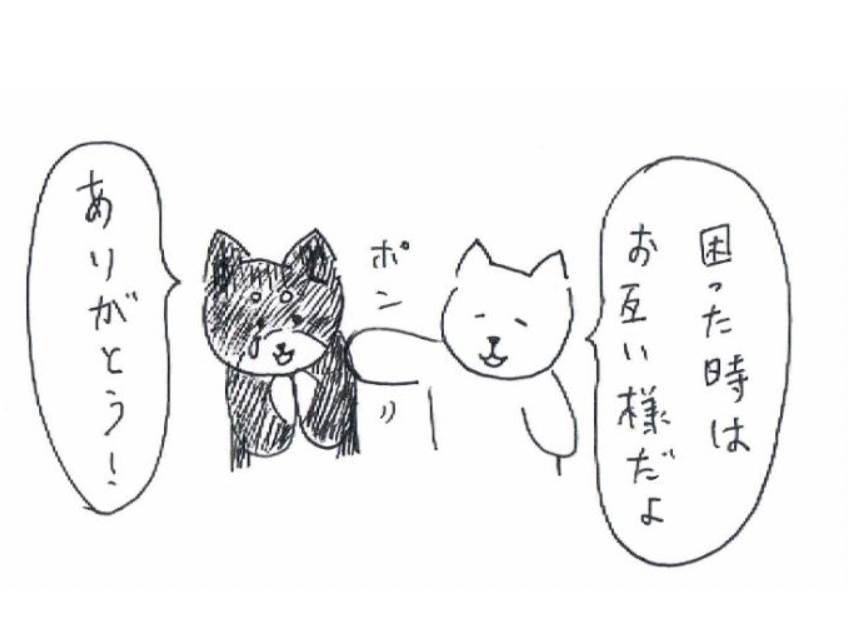 困った時は
お互い様だよ
ポン
ありがとう!